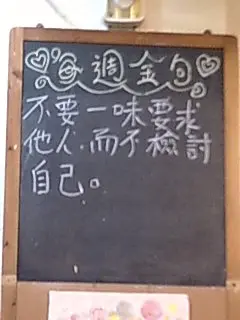 每週金句
不要一味要求
他人，而不檢討
自己。